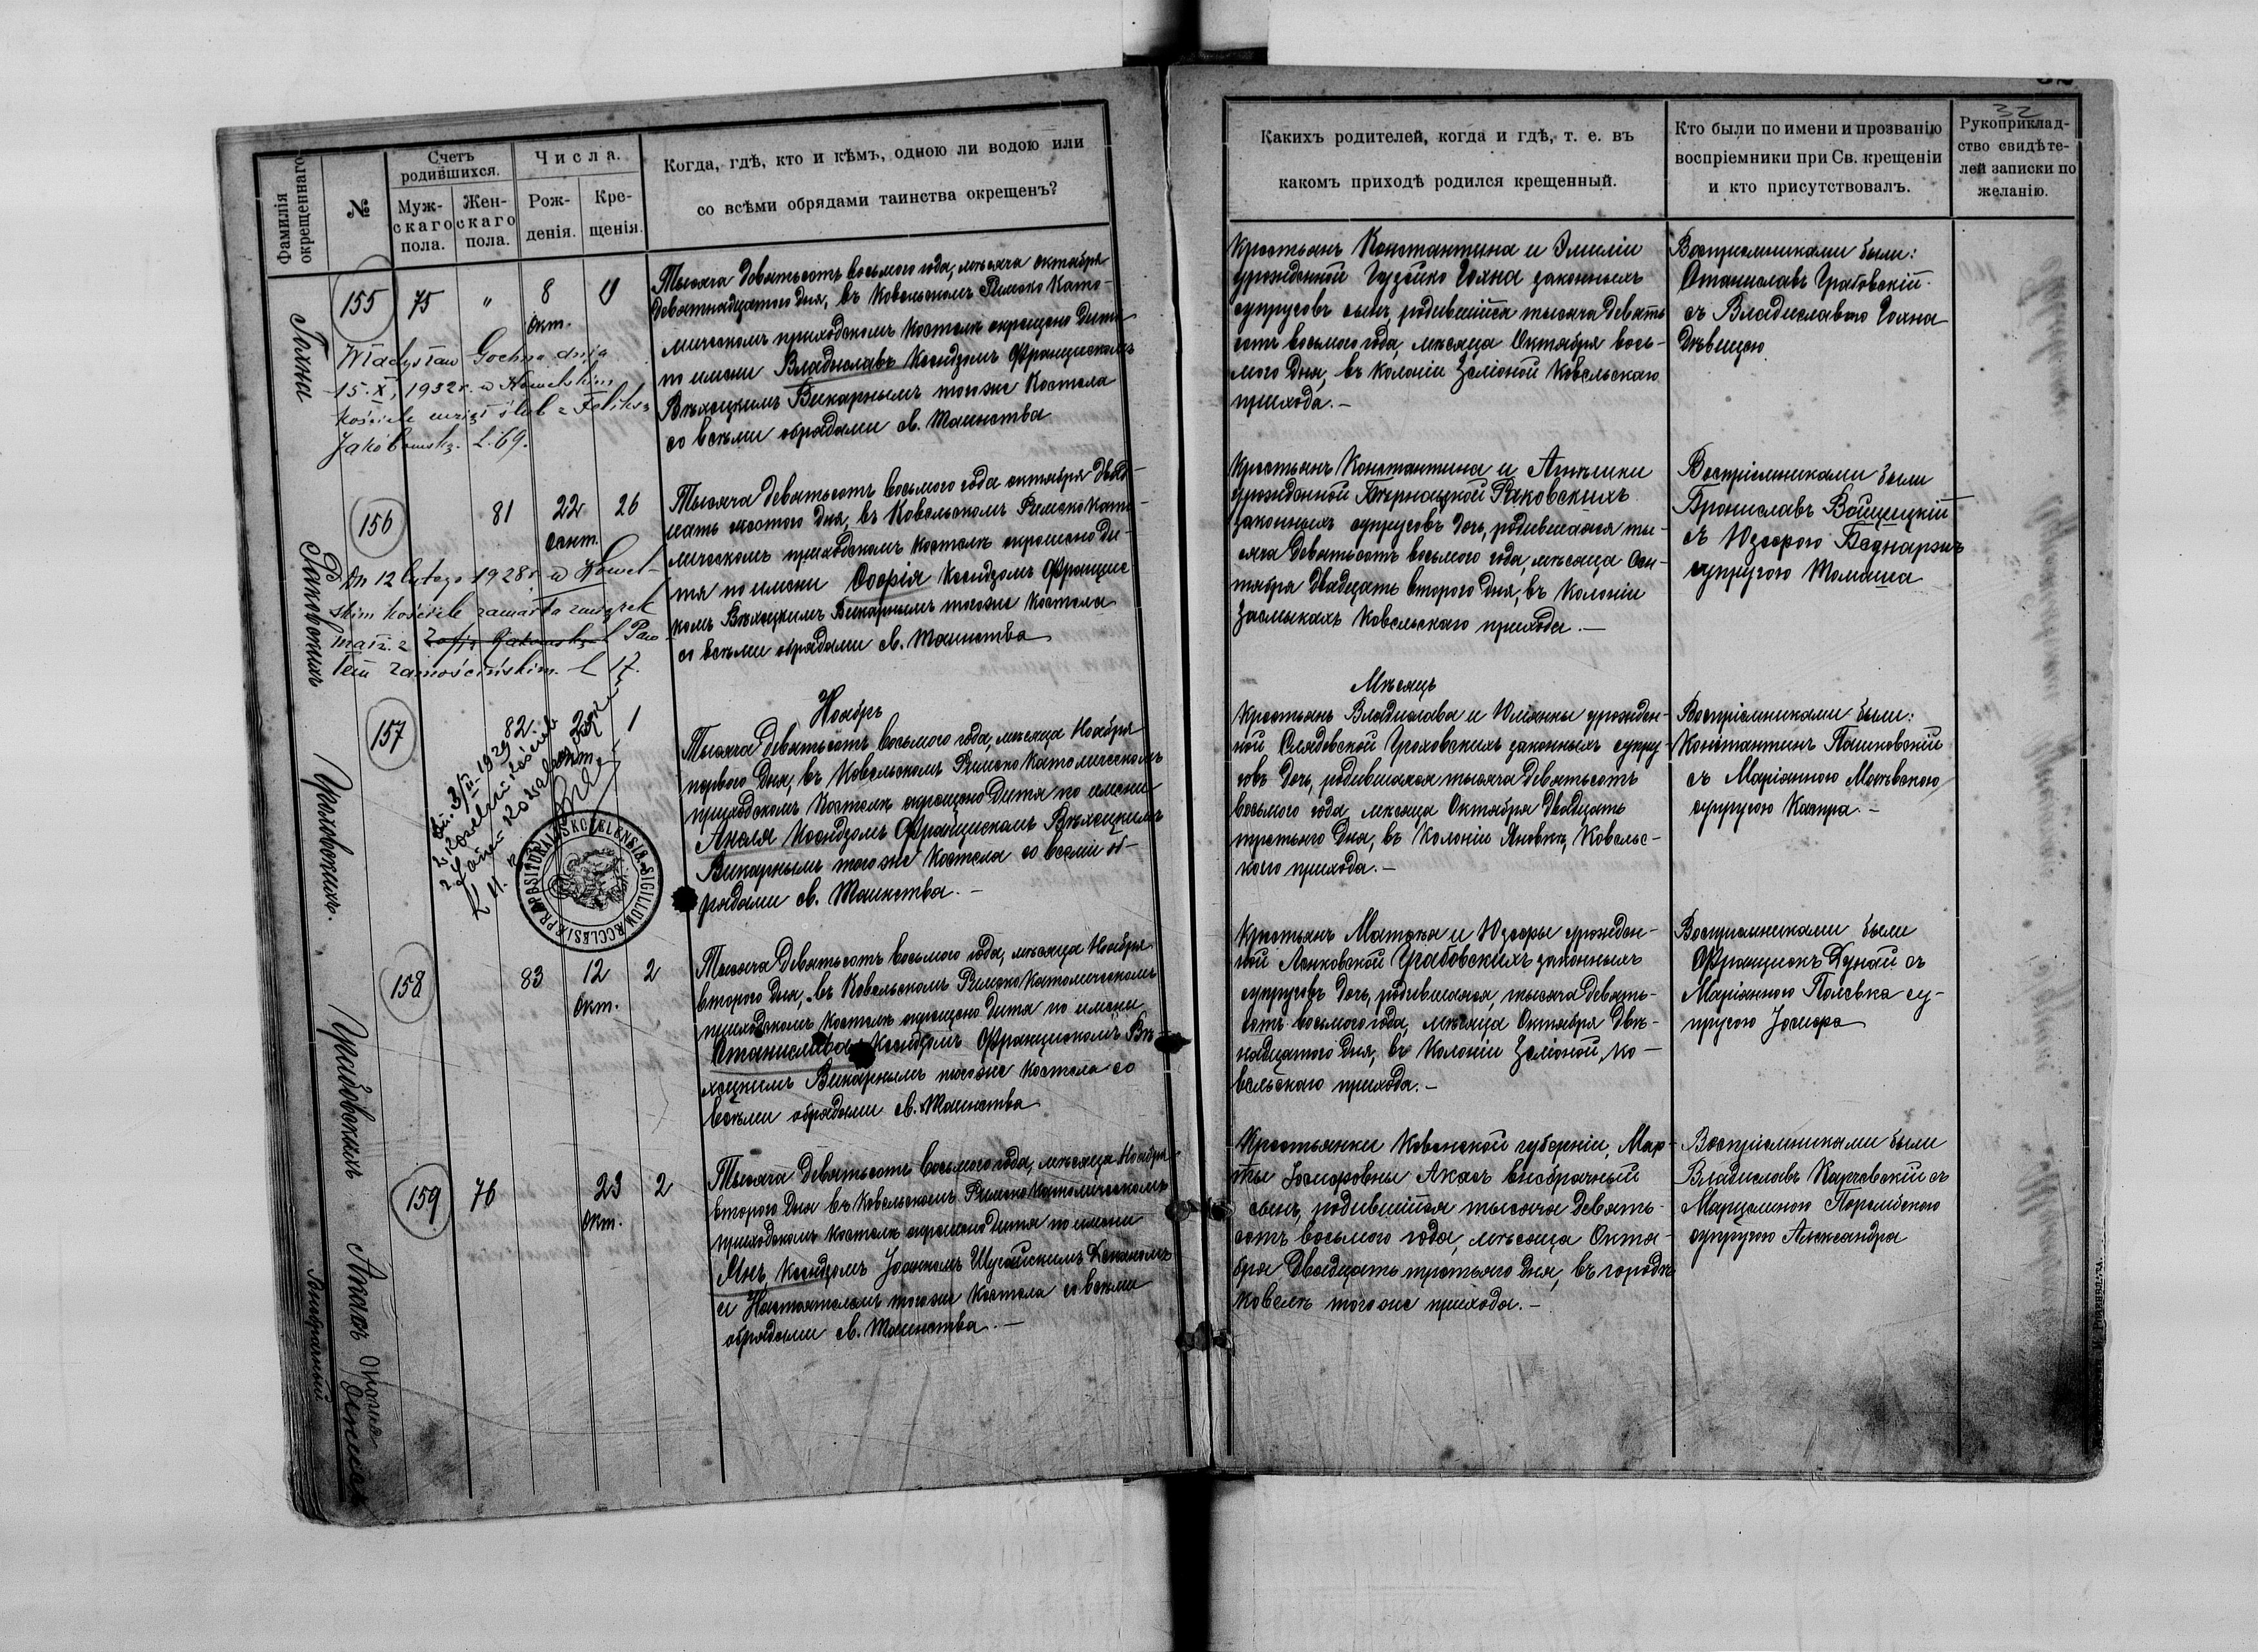 32
Фамилія окрещеннаго
№
Счетъ родившихся.
Муж-скаго пола.
Жен-скаго пола.
Числа.
Рож-денія.
Кре-щенія.
Когда, гдѣ, кто и кѣмъ, одною ли водою или
со всѣми обрядами таинства окрещенъ?
Какихъ родителей, когда и гдѣ, т. е. въ
какомъ приходѣ родился крещенный.
Кто были по имени и прозванію
воспріемники при Св. крещеніи
и кто присутствовалъ.
Рукоприклад-
ство свидѣте-
лей записки по
желанію.
Гохна
155
75
"
8
Окт.
Władysław Gochna dnia
15. X, 1932 r. w Kowelskim
kościele wziął ślub z Feliksą
L. 69.
Тысяча девятьсотъ восьмого года, мѣсяца октября
девятнадцатого дня, въ Ковельскомъ Римско Като-
лическомъ приходскомъ костелѣ окрещено дитя
по имени Владиславъ Ксендзомъ Францискомъ
Викарнымъ того же Костела
со всѣми обрядами св. Таинства
Крестьянъ Константина и Эмиліи
урожденной Гохна законныхъ
супруговъ сынъ, родившійся тысяча девять
сотъ восьмого года, мѣсяца Октября вось-
мого дня, въ колоніи Зеліоной Ковельскаго
прихода. —
Восприемниками были:
Станиславъ Грабовскій
съ Владиславою Гохна
Дѣвицею
Раковскихъ
156
81
22
сент.
26
Dn 12 lutego 1928 r w Kowel-
skim kościele zawarła związek
małż. z Zofja Rakowska Paw
łem Zamościńskim. L 17.
Тысяча девятьсотъ восьмого года октября двад-
цать шестого дня, въ Ковельскомъ Римско Като-
лическомъ приходскомъ костелѣ окрещено ди-
тя по имени Софія Ксендзомъ Францис
комъ Викарнымъ того же Костела
со всѣми обрядами св. Таинства
Крестьянъ Константина и
урожденной Раковскихъ
законныхъ супруговъ дочь, родившаяся ты-
сяча девятьсотъ восьмого года, мѣсяца Сен-
тября двадцать второго дня, въ Колоніи
Засмыкахъ Ковельскаго прихода. —
Воспріемниками были
Брониславъ Войцицкій
съ Юзефою Беднаржъ
супругою Томаша
Гроховскихъ.
157
82
23
окт.
1
Dn. 3/II-1929
L 11.
PRAEPOSITURALIS KOVELENSIS SIGILLUM ECCLESIÆ
Ноябрь
Тысяча девятьсотъ восьмого года, мѣсяца Ноября
первого дня, въ Ковельскомъ Римско Католическомъ
приходскомъ Костелѣ окрещено дитя по имени
Анеля Ксендзомъ Францискомъ
Викарнымъ того же Костела со всѣми об-
рядами св. Таинства. —
Мѣсяцъ
Крестьянъ Владислава и Юліанны урожден-
ной Слядовской Гроховскихъ законныхъ супру-
говъ дочь, родившаяся тысяча девятьсотъ
восьмого года мѣсяца Октября двадцать
третьяго дня, въ Колоніи Яновкѣ, Ковельс-
кого прихода. —
Воспріемниками были:
Константинъ Пашковскій
съ Маріанною
супругою Каспра. —
Грабовскихъ
158
83
12
окт.
2
Тысяча девятьсотъ восьмого года, мѣсяца Ноября
второго дня, въ Ковельскомъ Римско Католическомъ
приходскомъ костелѣ окрещено дитя по имени
Станислава Ксендзомъ Францискомъ
Викарнымъ того же Костела со
всѣми обрядами св. Таинства
Крестьянъ и Юзефы урожден-
ной Грабовскихъ законныхъ
супруговъ дочь, родившаяся, тысяча девять-
сотъ восьмого года, мѣсяца Октября двѣ-
надцатого дня, въ Колоніи Зеліоной, Ко-
вельскаго прихода. —
Восприемниками были
Францискъ Дунай съ
Маріанною су-
пругою Іосифа
Акасъ
Внебрачный
159
76
23
окт.
2
Тысяча девятьсотъ восьмого года, мѣсяца Ноября
второго дня въ Ковельскомъ Римско Католическомъ
приходскомъ костелѣ окрещено дитя по имени
Янъ, Ксендзомъ Деканомъ
и Настоятелемъ того же Костела со всѣми
обрядами св. Таинства. —
Крестьянки Ковенской губерніи, Мар-
ты Іосифовны Акасъ внебрачный
сынъ, родившійся тысяча девять-
сотъ восьмого года, мѣсяца Октя-
бря двадцать третьяго дня, въ городѣ
Ковелѣ того же прихода. —
Воспріемниками были
Владиславъ съ
супругою Александра